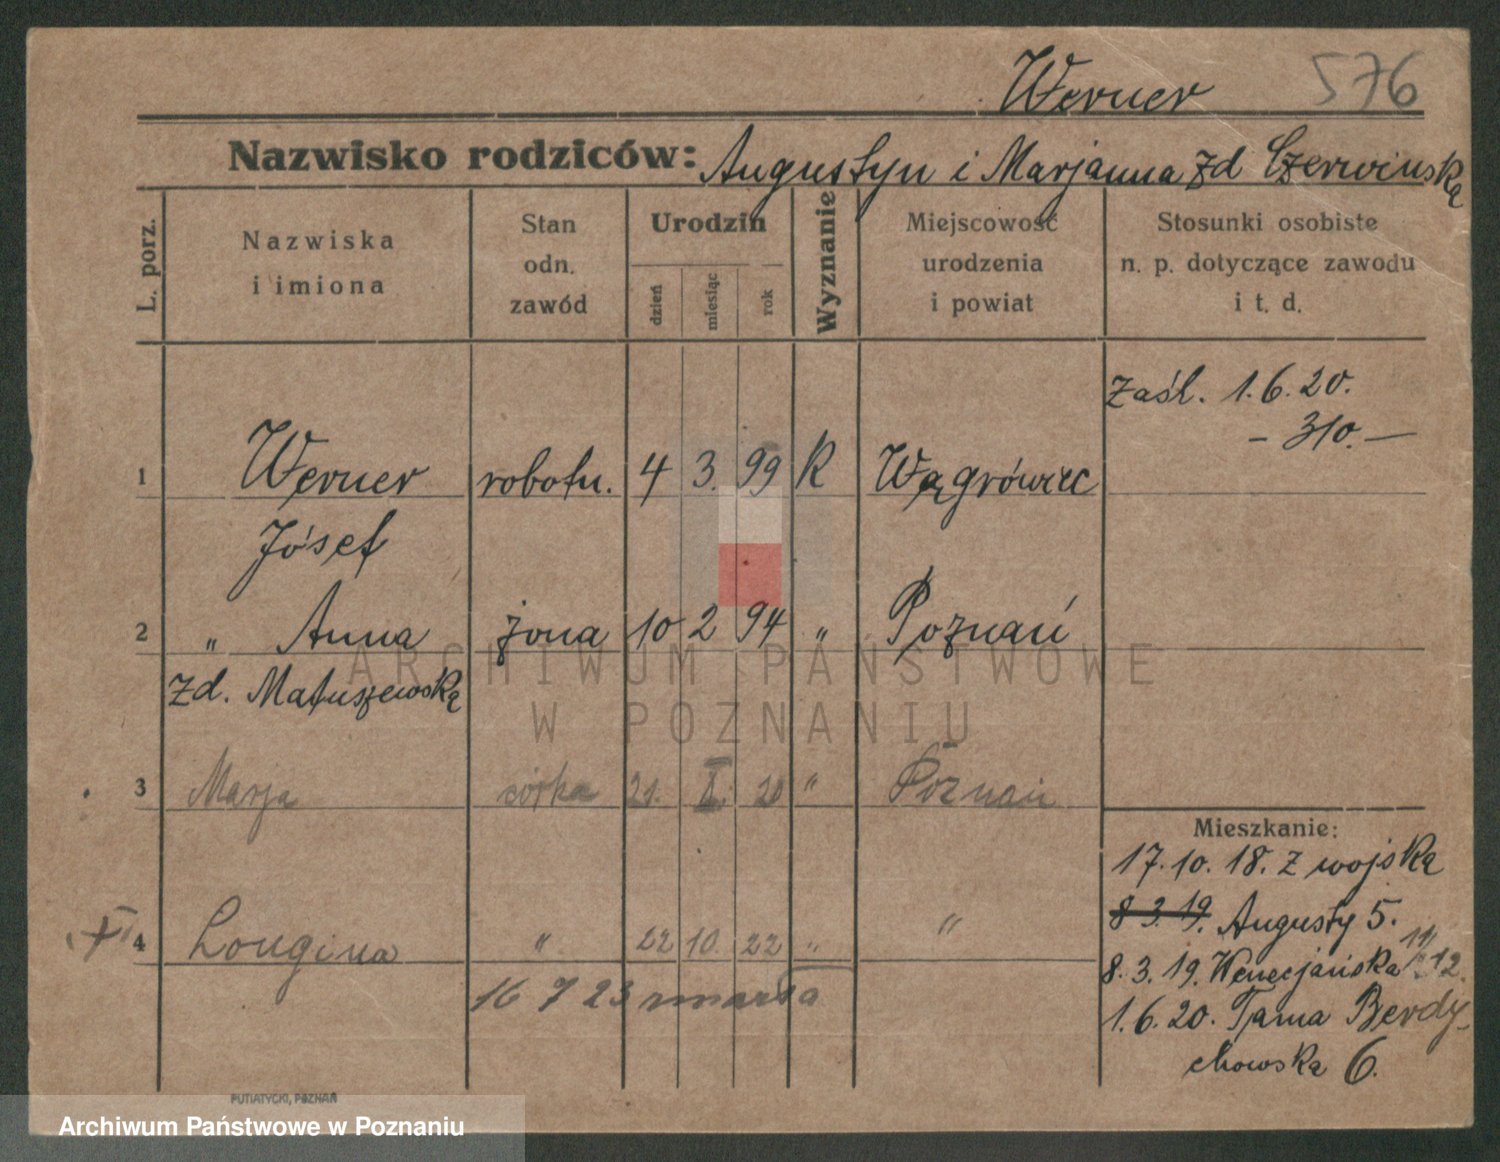 Werner 576
Nazwisko rodziców: Augustyn i Marjanna zd Czerwińską
L. porz.
Nazwiska
i imiona
Stan
odn.
zawód
Urodzin
dzień
miesiąc
rok
Wyznanie
Miejscowość
urodzenia
i powiat
Stosunki osobiste
n. p. dotyczące zawodu
i t. d.
zaśl. 1.6.20.
- 310. -
1 Werner robotn. 4 3. 99 K Wągrówiec
Józef
2 " Anna żona 10 2 94 " Poznań
zd. Matuszewską
3 Marja córka 21. X. 20 " Poznań
4 Longina " 22 10. 22 " "
16 7 23 zmarła
Mieszkanie:
17.10.18. z wojska
8 3. 19. Augusty 5.
8. 3. 19. Wenecjańska 11/12.
1.6.20. Tama Berdy-
chowska 6.
PUTIATYCKI, POZNAŃ
ARCHIWUM PAŃSTWOWE
W POZNANIU
Archiwum Państwowe w Poznaniu